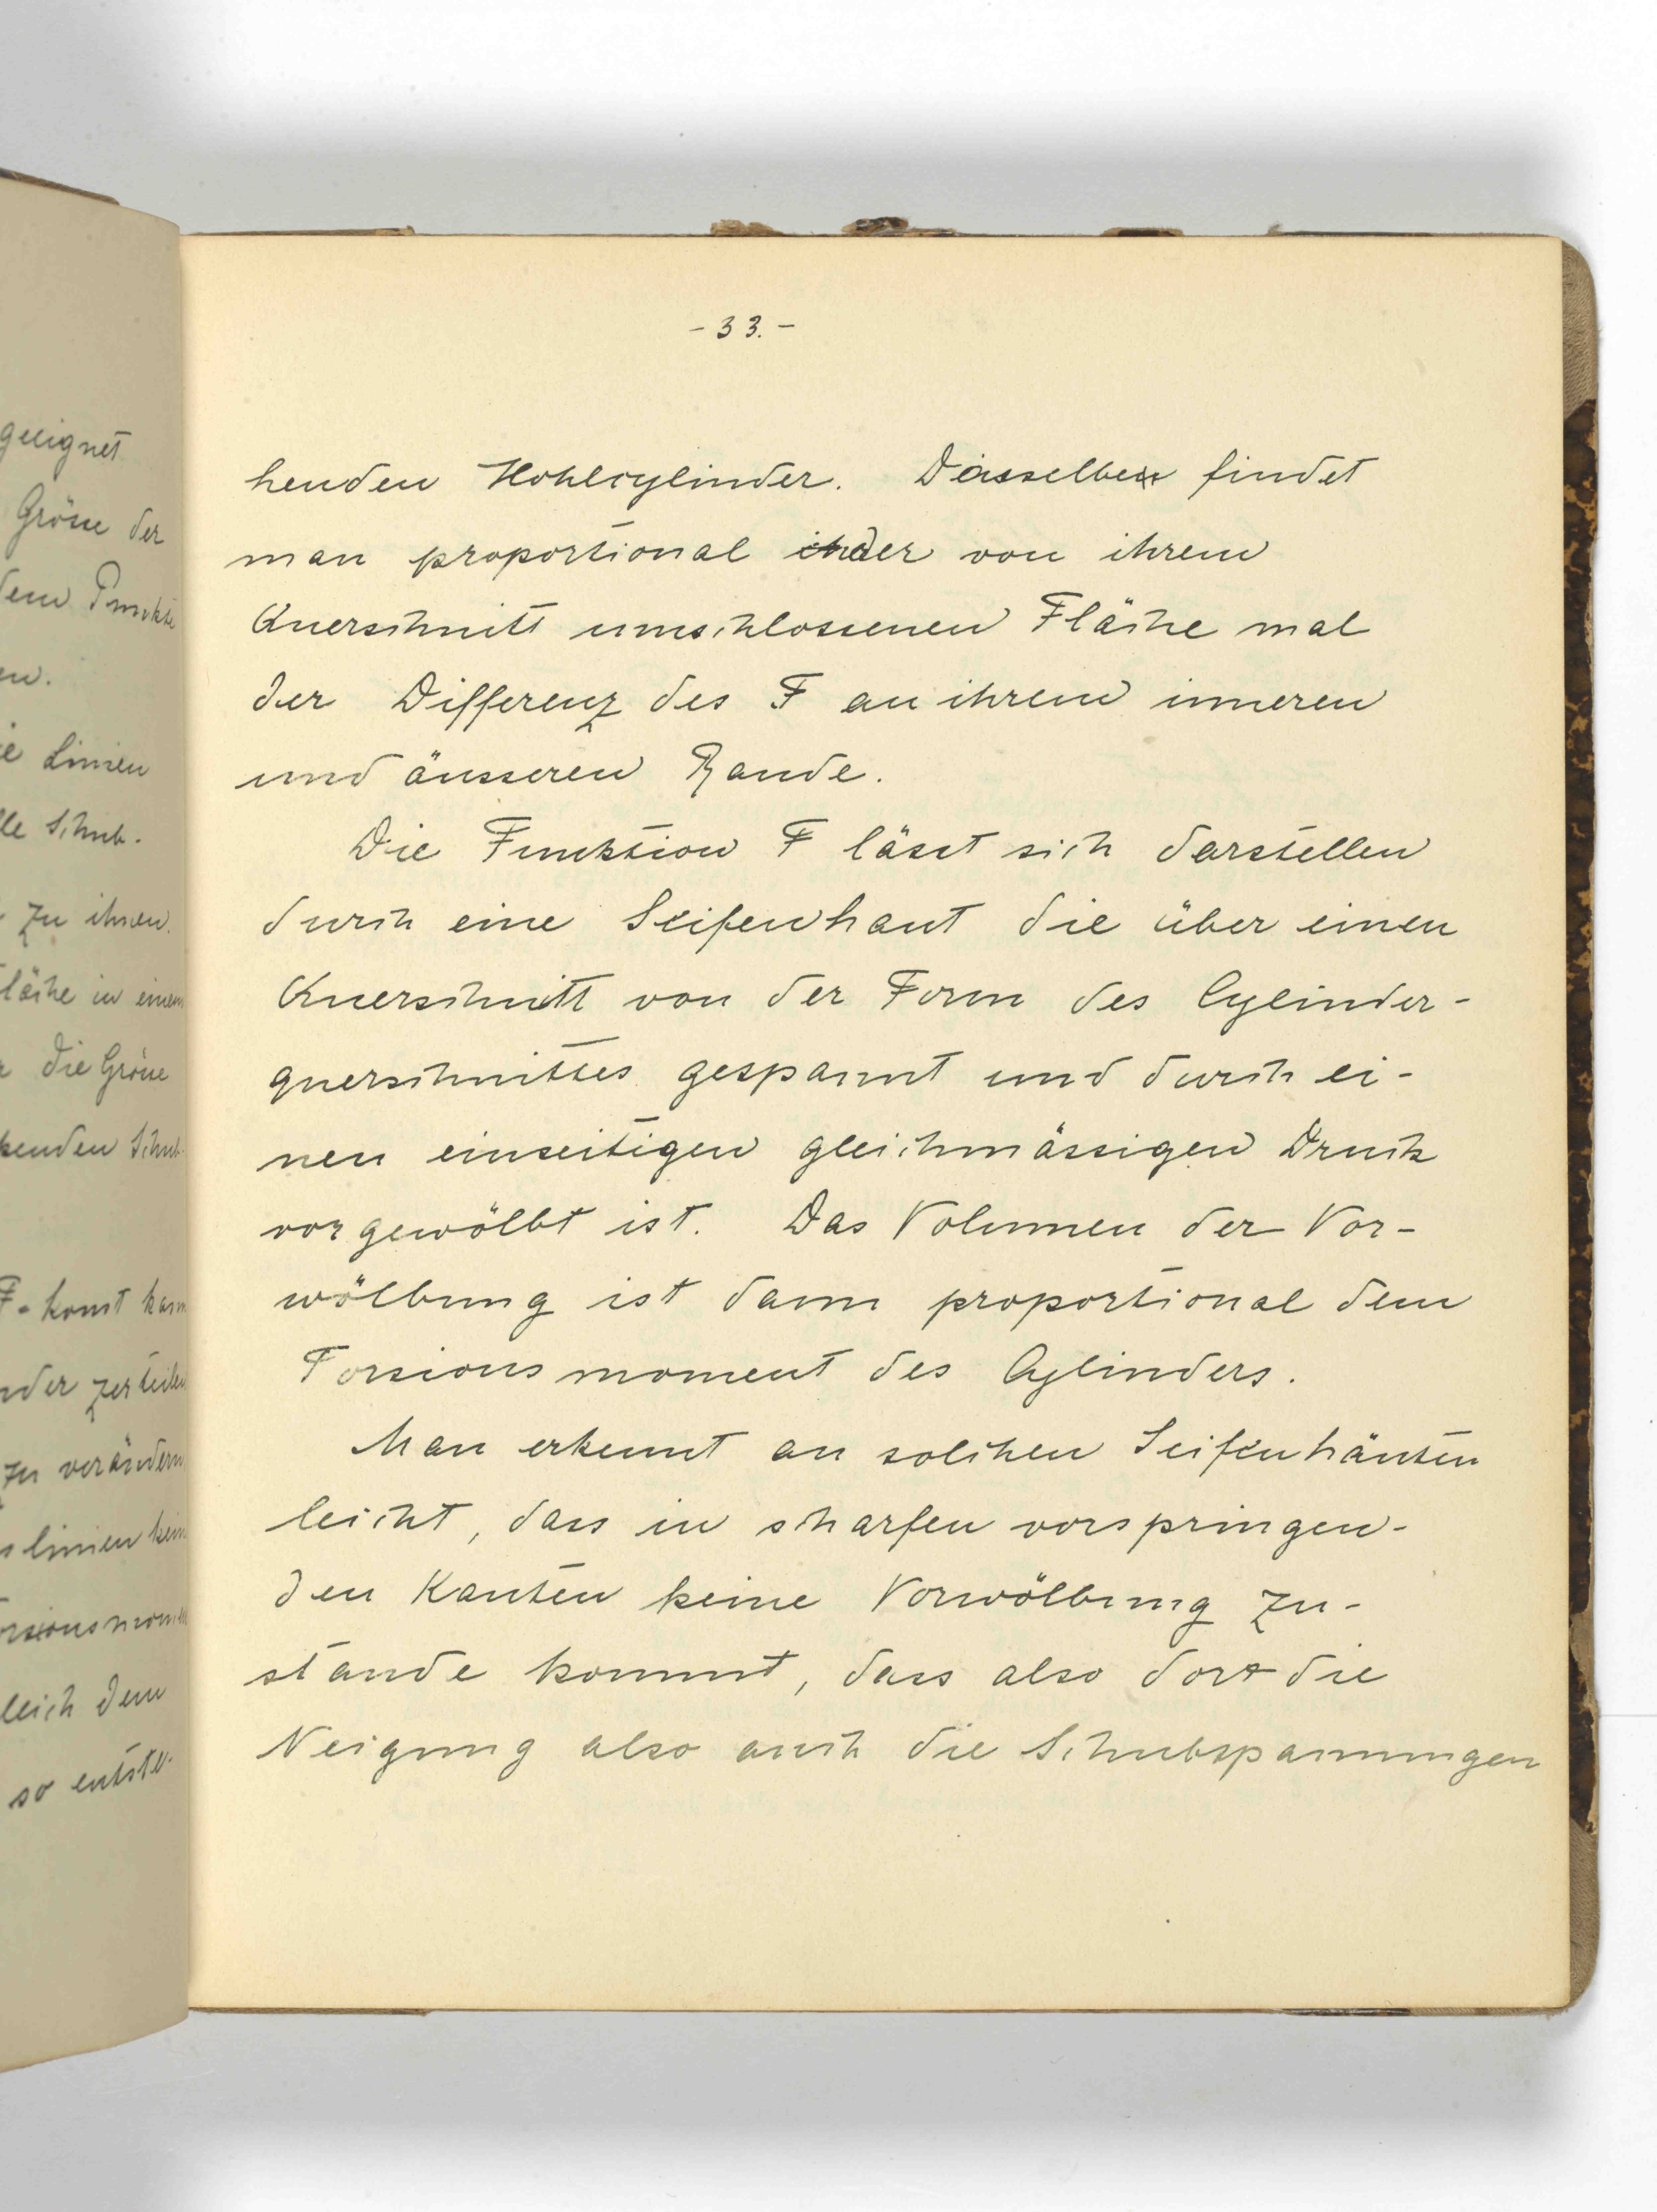 geeignet
Grösse der
dem Punkte
en.
ie Linien
lle Schub-
zu ihnen.
läche in einem
die Grösse
kenden Schub-
F = konst kann
nder zerteilen
zu verändern
slinien kein
orsionsmom
leich dem
so entste-
- 33. -
henden Hohlcylinder. Dasselbe findet
man proportional der von ihrem
Querschnitt umschlossenen Fläche mal
der Differenz des F an ihrem inneren
und äusseren Rande.
Die Funktion F lässt sich darstellen
durch eine Seifenhaut die über einen
Querschnitt von der Form des Cylinder-
querschnittes gespannt und durch ei-
nen einseitigen gleichmässigen Druck
vorgewölbt ist. Das Volumen der Vor-
wölbung ist dann proportional dem
Torsionsmoment des Cylinders.
Man erkennt an solchen Seifenhäuten
leicht, dass in scharfen vorspringen-
den Kanten keine Vorwölbung zu-
stande kommt, dass also dort die
Neigung also auch die Schubspannungen